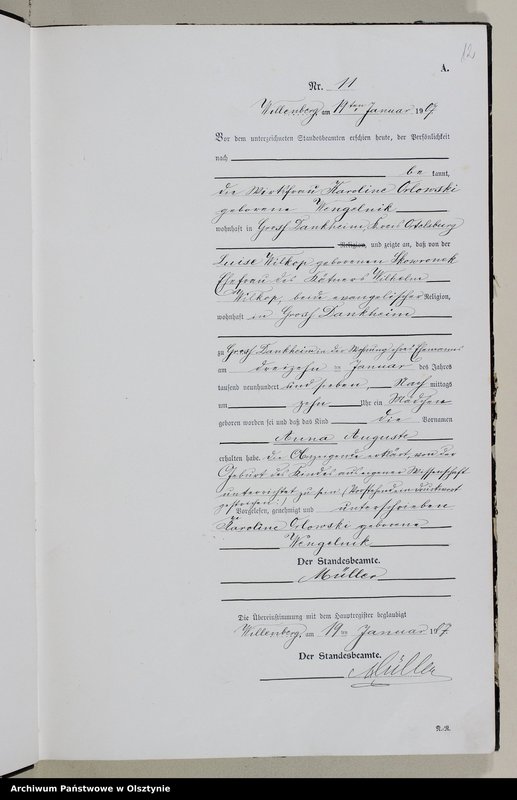 12
A.
Nr. 11
Willenberg, am 14ten Januar 1907
Vor dem unterzeichneten Standesbeamten erschien heute, der Persönlichkeit
nach
be kannt,
die Wirtsfrau Karoline Orlowski
geborene Wengelnik
wohnhaft in Groß Dankheim, Kreis Ortelsburg
Religion, und zeigte an, daß von der
Luise Wilkop, geborenen Skowronek
Ehefrau des Kätners Wilhelm
Wilkop, beide evangelischer Religion,
wohnhaft in Gross Dankheim
zu Gross Dankheim in der Wohnung ihres Ehemannes
am dreizehn ten Januar des Jahres
tausend neunhundert und sieben, Nach mittags
um zehn Uhr ein Mädchen
geboren worden sei und daß das Kind die Vornamen
Anna Auguste
erhalten habe. die Anzeigende erklärt, von der
Geburt des Kindes aus eigener Wissenschaft
unterrichtet zu sein (Vorstehend ein Druckwort
gestrichen.)
Vorgelesen, genehmigt und unterschrieben
Karoline Orlowski geborene
Wengelnik
Der Standesbeamte.
Müller
Die Übereinstimmung mit dem Hauptregister beglaubigt
Willenberg, am 14 ten Januar 1907
Der Standesbeamte.
Müller
R.-R.
Archiwum Państwowe w Olsztynie